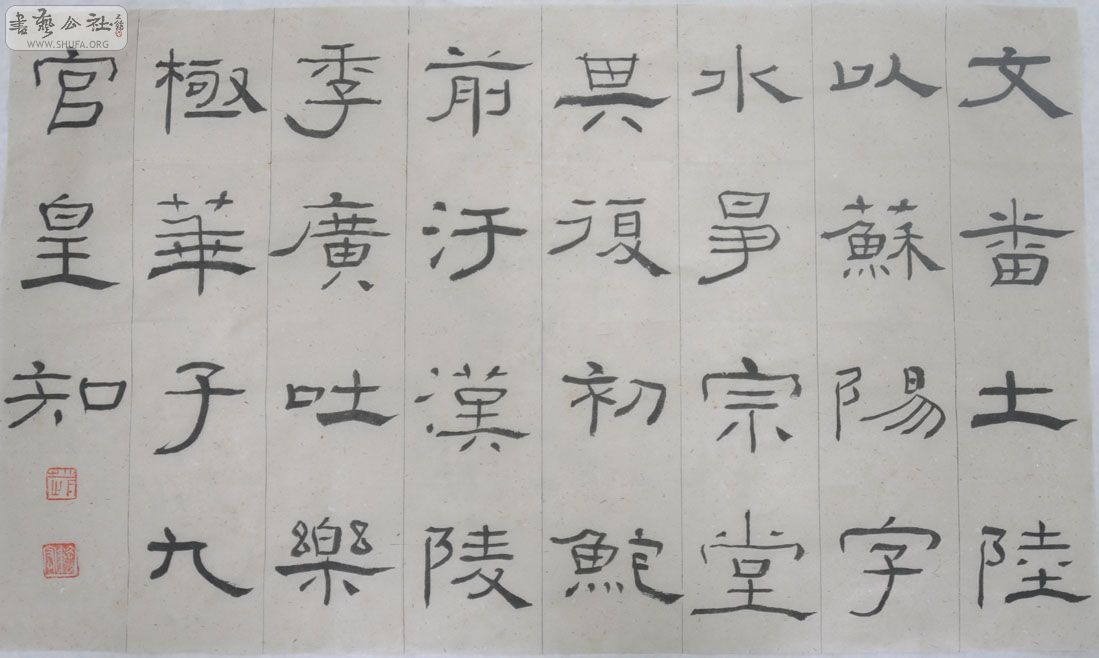 文畨土陸
以蘇陽字
水㝵宗堂
異復初鮑
前汙漢陵
季廣吐樂
極華子九
宮皇知
書藝公社
WWW.SHUFA.ORG